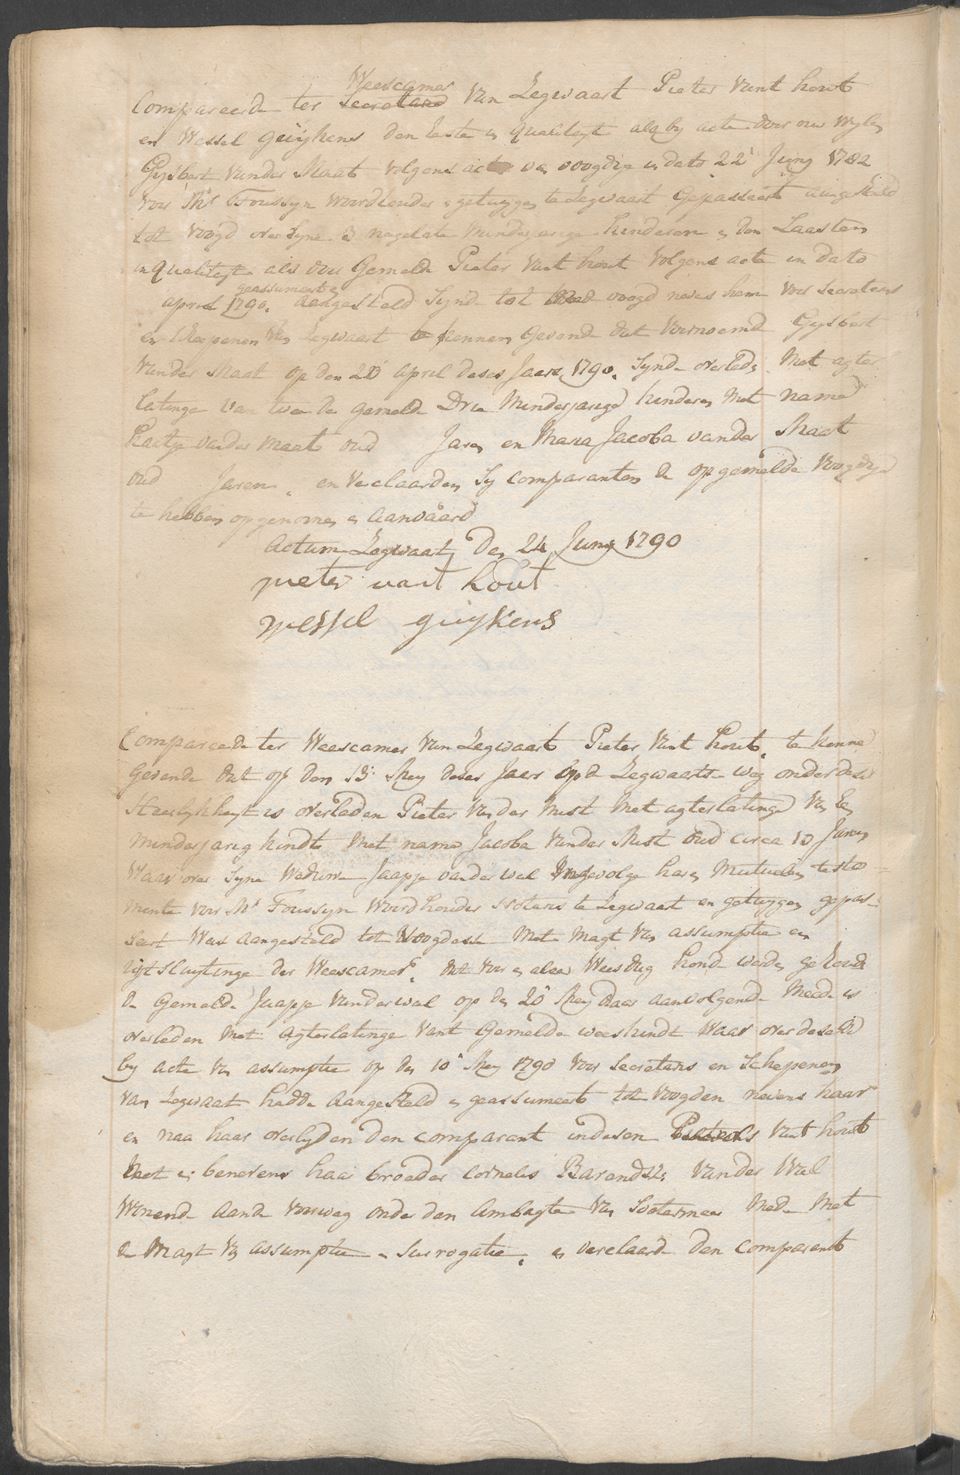 Weescamer
Compareerde ter Secretarie van Zegwaart Pieter vant hout
en Wessel Guijkens den eerste in qualiteyt als by acte door ons wylen
Gysbert vander Maat volgens acte van voogdye in dato 22 Juny 1782
voor Mr Foussyn woordhouder getuygen te Zegwaart gepasseert aangesteld
tot voogd over syne 3 nagelate minderjarige kinderen en den Laasten
in qualiteyt als door gemelde Pieter vant hout volgens acte in dato
geassumeert
april 1790. aangesteld synde tot voogd neves hem voor secretaris
en schepenen van Zegwaart te kennen gevend dat voornoemd Gysbert
vander Maat op den 28 april deses Jaars 1790. synde overleden met agter
latinge van twee de gemelde Drie minderjarige kinderen met name
vander Maat oud Jaren en Maria Jacoba vander Maat
oud Jaren. en verclaarden sy comparanten de opgemelde voogdye
te hebben opgenomen en aanvaard
Actum Zegwaart Den 24 Juny 1790
pieter vant hout
wessel guijkens
Compareerde ter Weescamer van Zegwaart Pieter vant hout. te kenne
gevende dat op den 13 Mey deses Jaars op de Zegwaarts weg onder dese
Heerlykheyt is overleden Pieter vander Mist met agterlatinge van Een
minderjarig kindt met name Jacoba vander Mist oud circa 10 Jaren
Waar over syne Weduwe Jaapje vander wel Ingevolge haren Mutuelen testa
mente voor Mr Foussyn Woordhouder Notaris te Zegwaart en getuygen gepas-
seert Was aangesteld tot Voogdesse Met magt van assumptie en
uytsluytinge der Weescamer. dat voor en aleer
de gemelde Jaapje vander wal op den 20 Mey daar aanvolgende Meede is
overleden met agterlatinge vant gemelde weeskindt waar over deselve
by acte van assumptie op den 10 Mey 1790 voor secretaris en Schepenen
van Zegwaart hadde aangesteld en geassumeert tot voogden nevens haar
en naa haar overlyden den comparant indesen Pieter vant hout
met en benevens haar broeder Cornelis Barendse vander Wal
Wonende aande voorweg onder den Ambagte van Soetermeer Mede met
de Magt van assumptie en surrogatie. en verclaarde den comparant